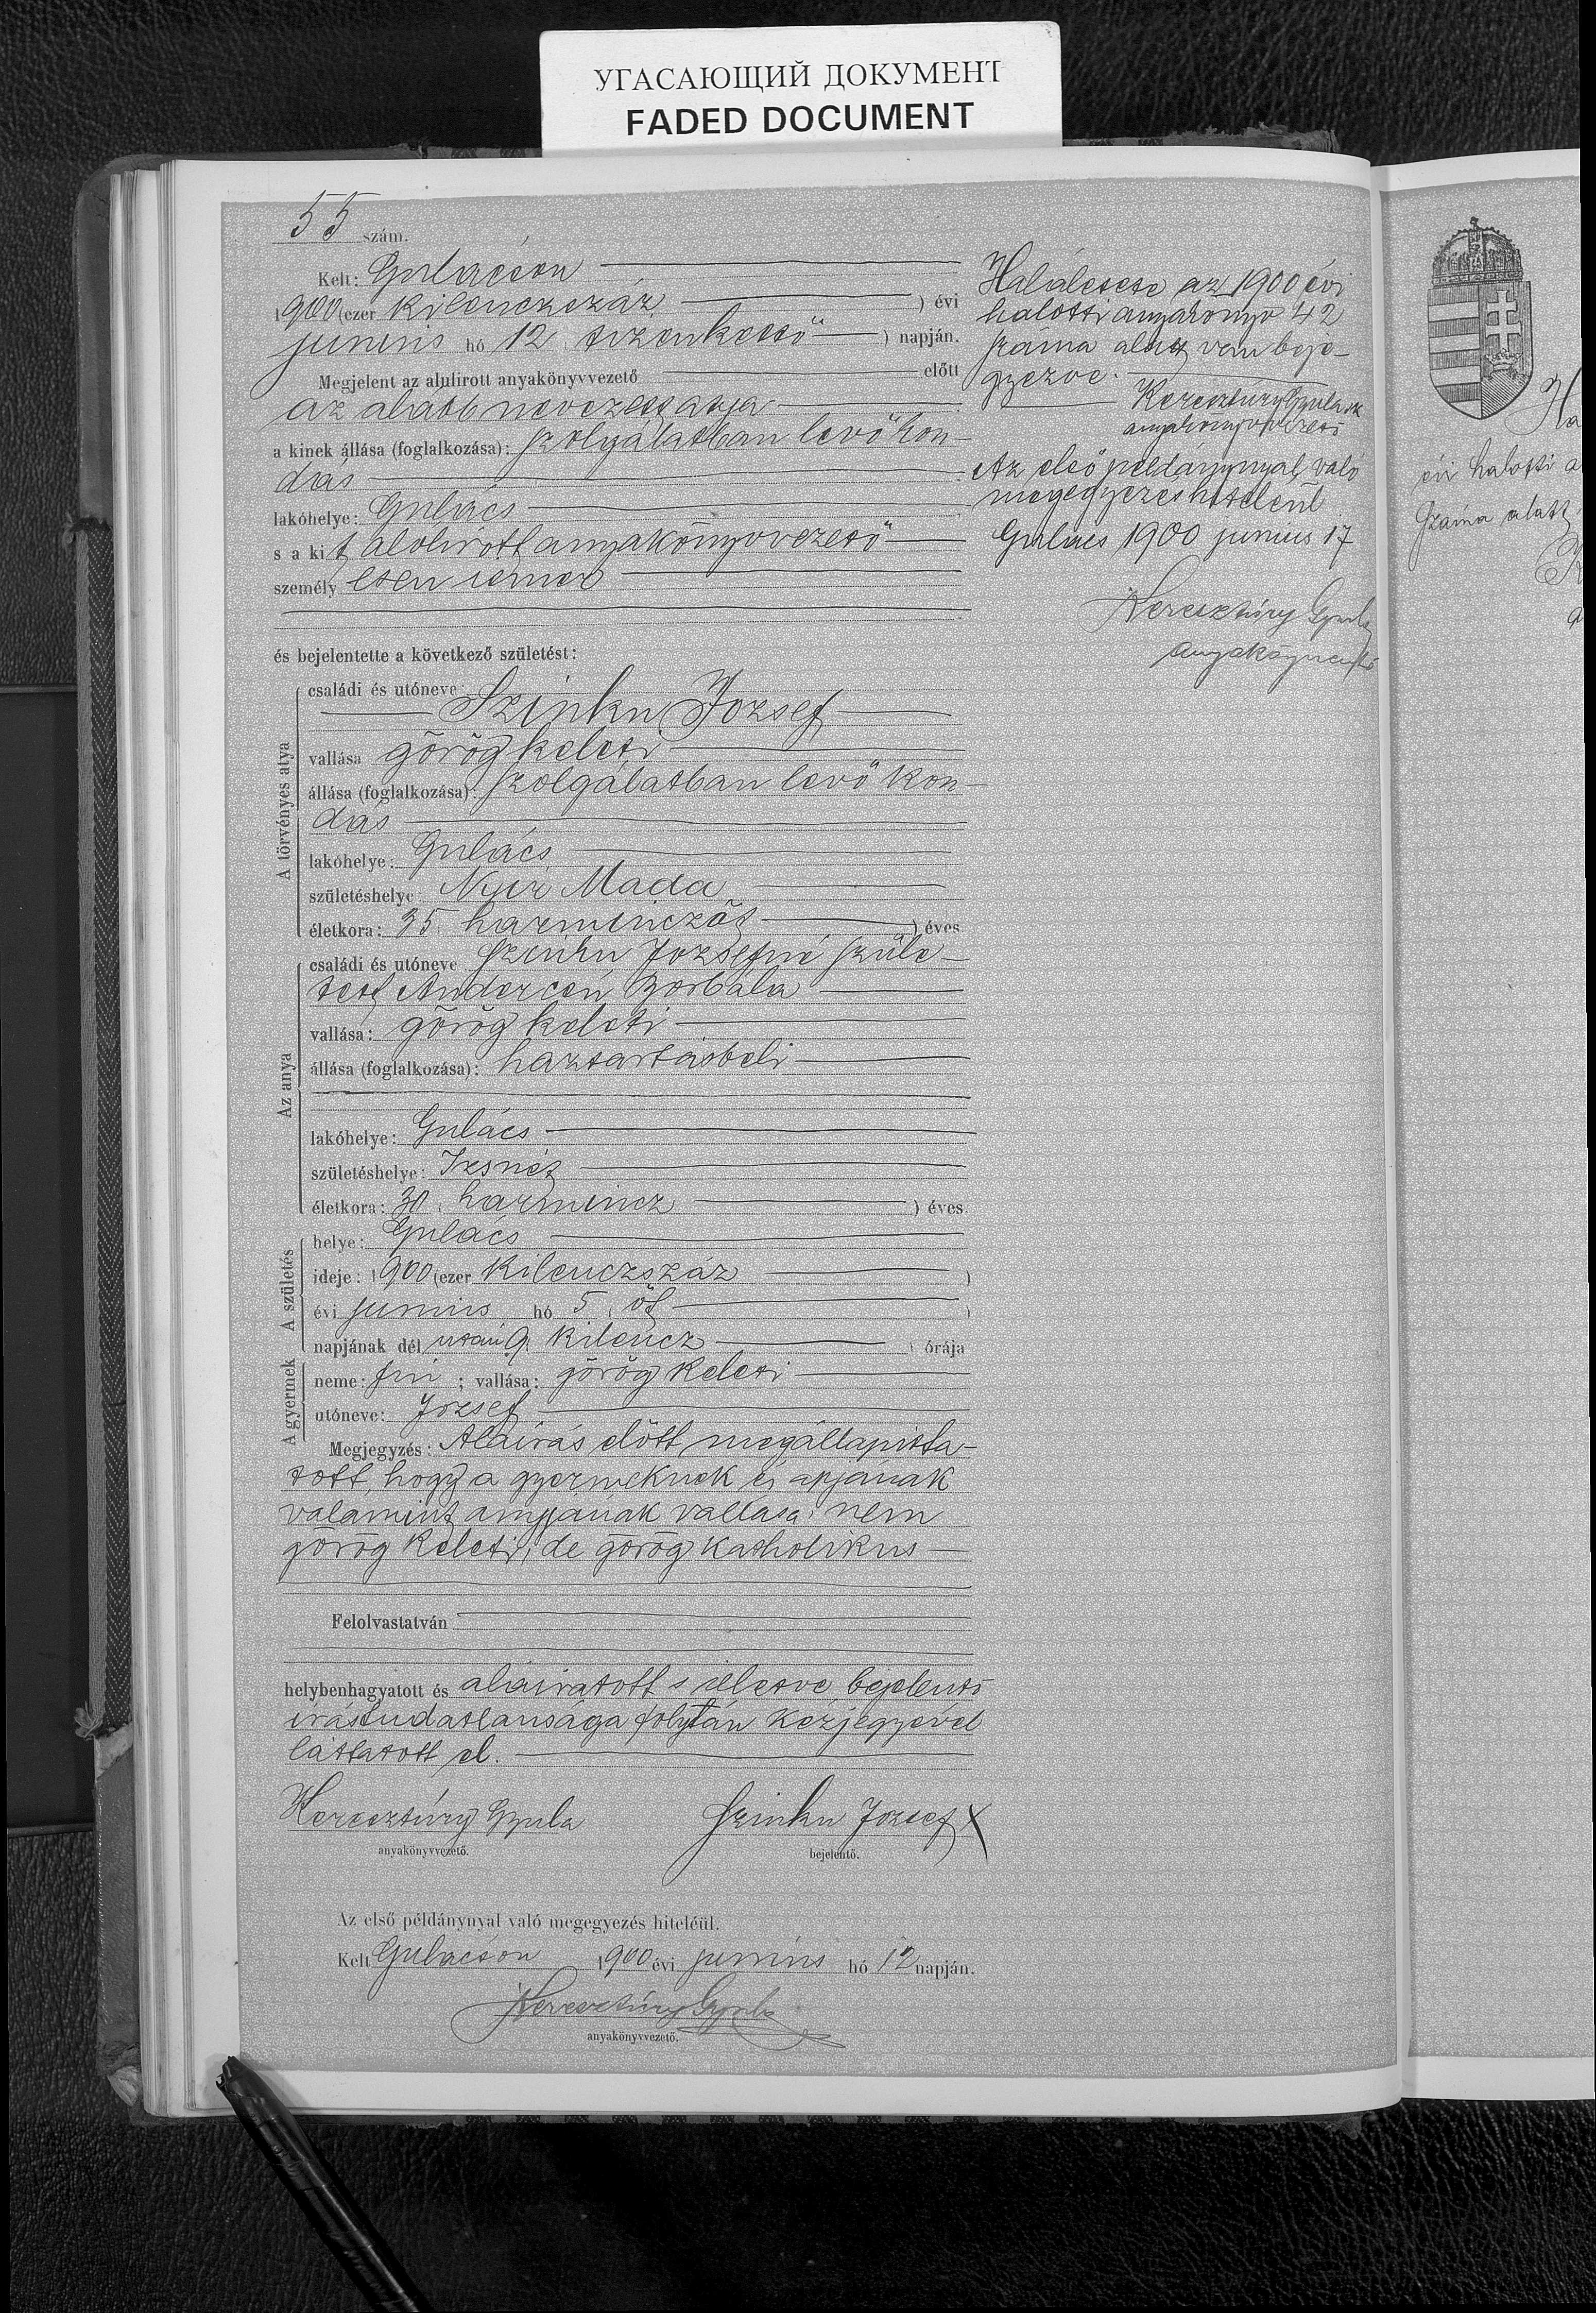 УГАСАЮЩИЙ ДОКУМЕНТ
FADED DOCUMENT
55 szám.
Kelt: Gulácson
1900 (ezer kilenczszáz ) évi
junius hó 12 tizenkettő ) napján.
Megjelent az alulirott anyakönyvvezető előtt
az alább nevezett atya
a kinek állása (foglalkozása): szolgálatban levő kon-
dás
lakóhelye: Gulács
s a kit alolirott anyakönyvvezető
személy esen ismer
és bejelentette a következő születést:
A törvényes atya
családi és utóneve
Szinku József
vallása görög keleti
állása (foglalkozása): szolgálatban levő kon-
dás
lakóhelye: Gulács
születéshelye Nyir Mada
életkora: 35 harminczöt ) éves
Az anya
családi és utóneve Szinku Józsefné szüle-
tett Andercén Borbála
vallása: görög keleti
állása (foglalkozása): háztartásbeli
lakóhelye: Gulács
születéshelye:
életkora: 30 harmincz ) éves
A születés
helye: Gulács
ideje: 1900 (ezer kilenczszáz )
évi junius hó 5 öt )
napjának dél után 9 kilencz ) órája
A gyermek
neme: fiú ; vallása: görög keleti
utóneve: József
Megjegyzés: Aláirás előtt megállapitta-
tott, hogy a gyermeknek és apjának
valamint anyjának vallása nem
görög keleti, de görög katholikus
Felolvastatván
helybenhagyatott és aláiratott s illetve bejelentő
irástudatlansága folytán kézjegyével
láttatott el.
Keresztúry Gyula Szinku József X
anyakönyvvezető. bejelentő.
Az első példánynyal való megegyezés hiteléül.
Kelt Gulácson 1900 évi junius hó 12 napján.
Keresztúry Gyula
anyakönyvvezető.
Halálesete az 1900 évi
halotti anyakönyv 42
száma alatt van beje-
gyezve.
Keresztúry Gyula
anyakönyvvezető
Az első példánynyal való
megegyezés hiteléül
Gulács 1900 junius 17
Keresztúry Gyula
anyakönyvvezető
Ha
évi halotti a
száma alatt
K
a